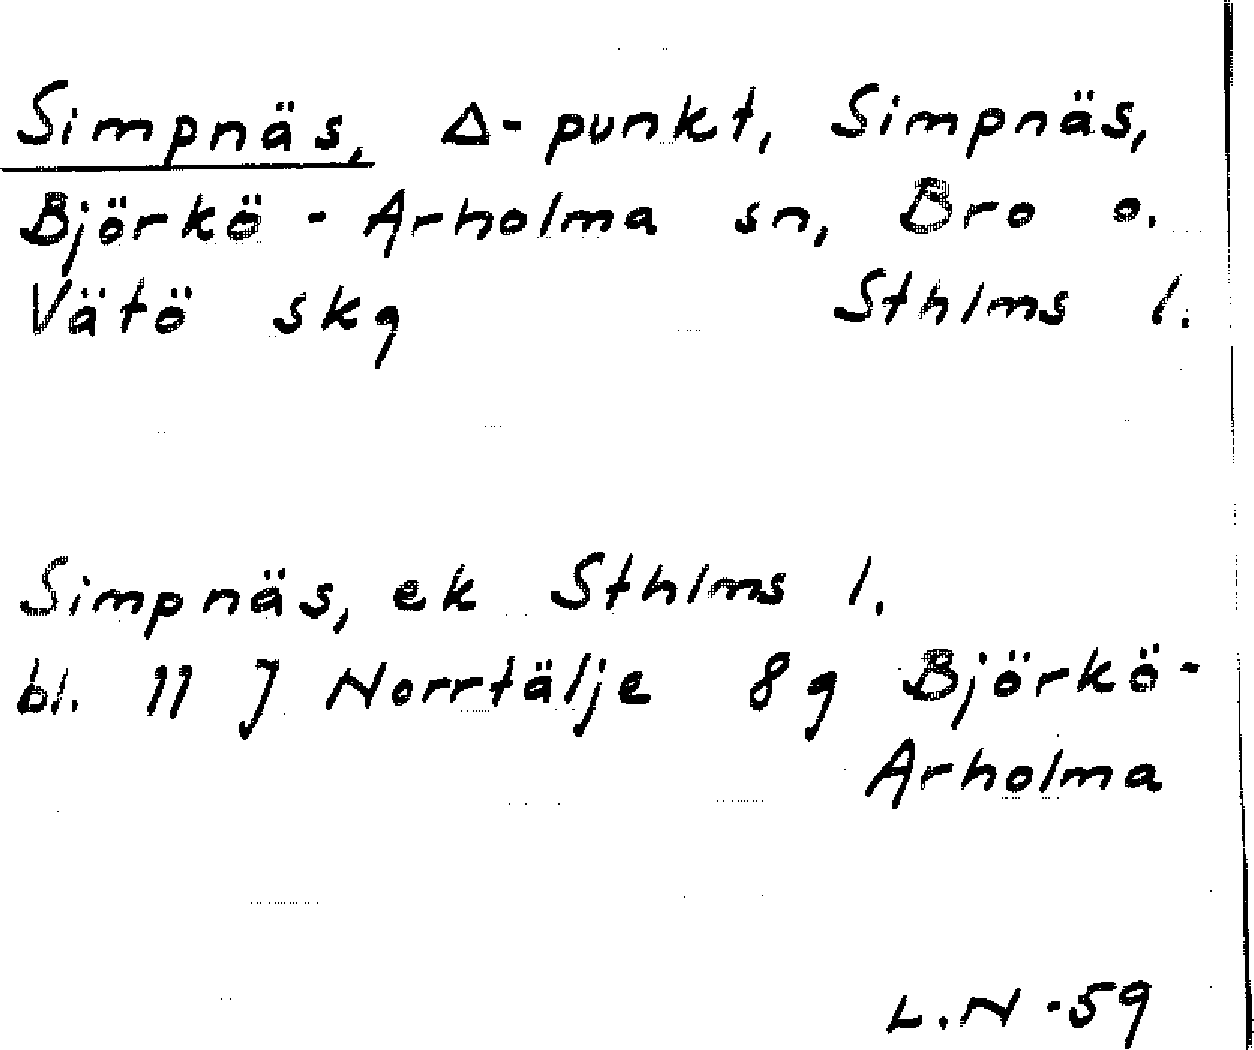 Simpnäs, Δ-punkt, Simpnäs,
Björkö - Arholma sn, Bro o.
Vätö skg Sthlms l.
Simpnäs, ek Sthlms l.
bl. 11 J Norrtälje 8g Björkö-
Arholma
L.N -59